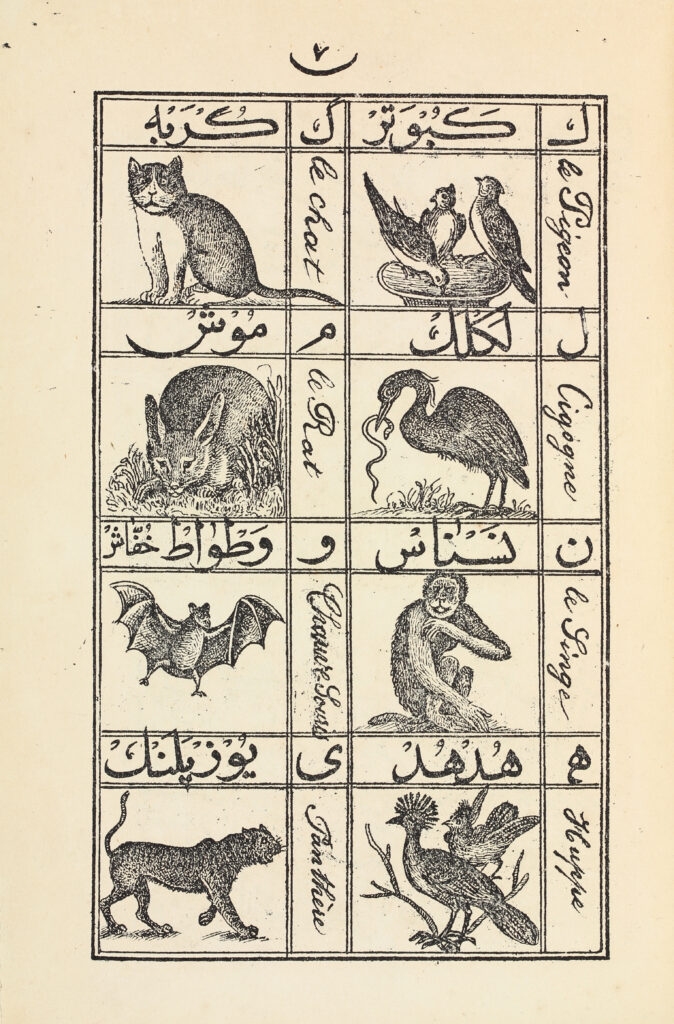 ٧
ك
كَبُوتَرْ
گ
كُرْبَه
le Pigeon
le chat
ل
لَكلَكْ
م
مُوشْ
Cigogne
le Rat
ن
نَسْنَاسْ
و
وَطْوَاطْ خُفَّاشْ
le Singe
Chauve Souris
ه
هُدْهُدْ
ى
يُوزْپَلَنْكْ
Huppe
Panthère